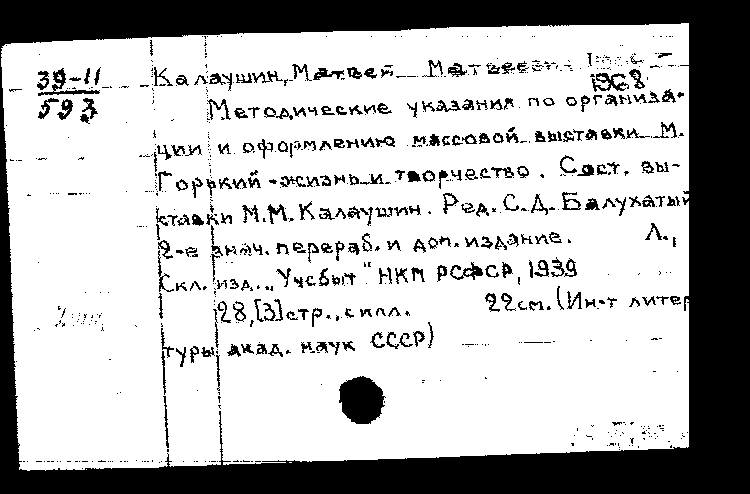 39-11
593
Калаушин, Матвей Матвеевич
1968
Методические указания по организа-
ции и оформлению массовой выставки М.
Горький - жизнь и творчество. Сост. вы-
ставки М.М. Калаушин. Ред. С.Д. Балухатый
2-е знач. перераб. и доп. издание. Л.,
Скл. изд. „Учсбыт" НКП РСФСР, 1939
28, [3] стр., с илл. 22 см. (Ин-т литер
туры акад. наук СССР)